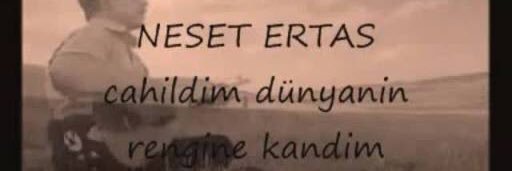 NESET ERTAS
cahildim dünyanin
rengine kandim